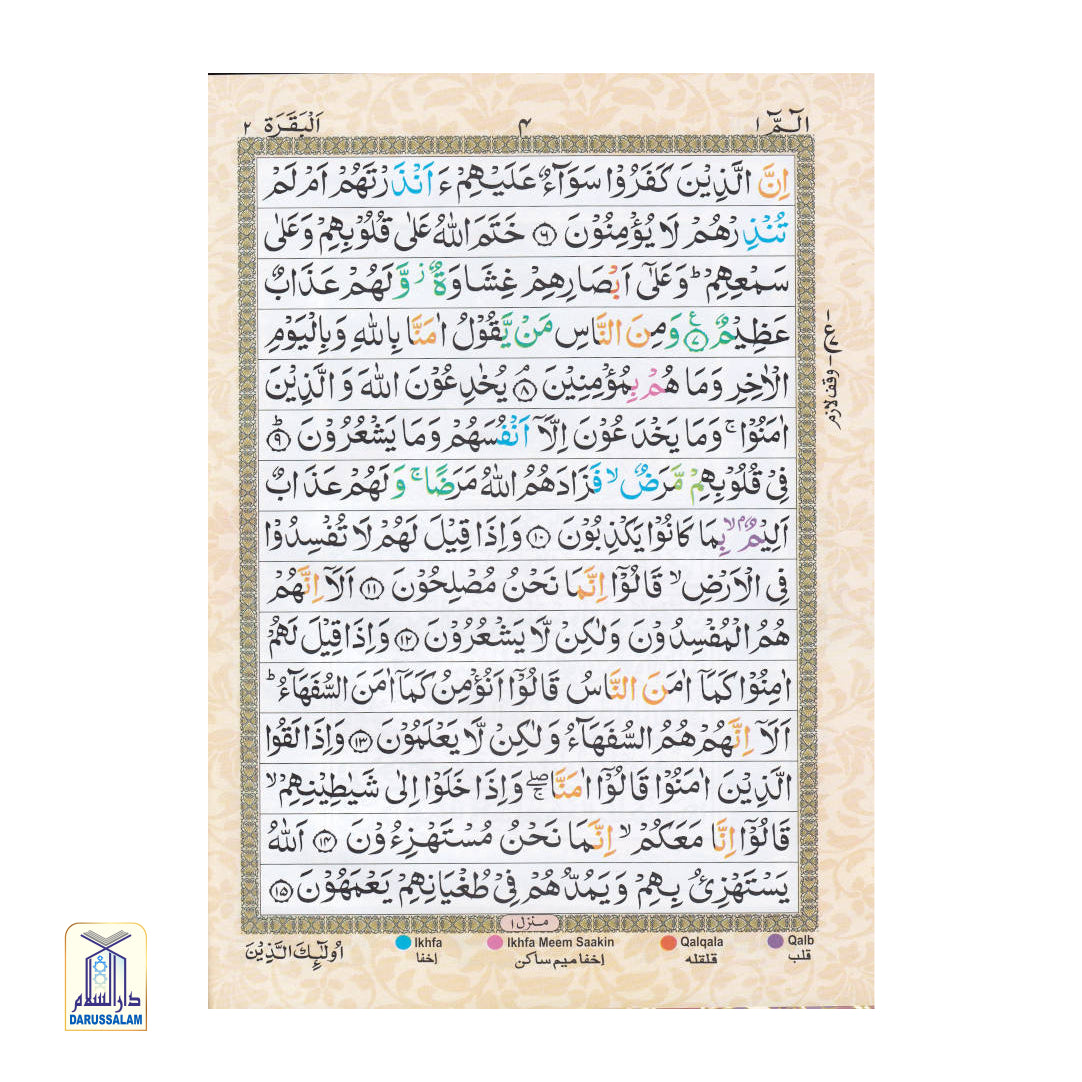 الٓمّٓ ١ ٤ اَلْبَقَرَة ٢
اِنَّ الَّذِيْنَ كَفَرُوْا سَوَآءٌ عَلَيْهِمْ ءَ اَنْذَرْتَهُمْ اَمْ لَمْ
تُنْذِرْهُمْ لَا يُؤْمِنُوْنَ ۶ خَتَمَ اللّٰهُ عَلٰى قُلُوْبِهِمْ وَعَلٰى
سَمْعِهِمْ ؕ وَعَلٰٓى اَبْصَارِهِمْ غِشَاوَةٌ ز وَّلَهُمْ عَذَابٌ
عَظِيْمٌ ۷ ع وَمِنَ النَّاسِ مَنْ يَّقُوْلُ اٰمَنَّا بِاللّٰهِ وَبِالْيَوْمِ
الْاٰخِرِ وَمَا هُمْ بِمُؤْمِنِيْنَ ۸ يُخٰدِعُوْنَ اللّٰهَ وَالَّذِيْنَ
اٰمَنُوْا ۚ وَمَا يَخْدَعُوْنَ اِلَّآ اَنْفُسَهُمْ وَمَا يَشْعُرُوْنَ ۹ؕ
فِيْ قُلُوْبِهِمْ مَّرَضٌ ۙ فَزَادَهُمُ اللّٰهُ مَرَضًا ۚ وَلَهُمْ عَذَابٌ
اَلِيْمٌ ۢ ۙ بِمَا كَانُوْا يَكْذِبُوْنَ ۱۰ وَاِذَا قِيْلَ لَهُمْ لَا تُفْسِدُوْا
فِي الْاَرْضِ ۙ قَالُوْٓا اِنَّمَا نَحْنُ مُصْلِحُوْنَ ۱۱ اَلَآ اِنَّهُمْ
هُمُ الْمُفْسِدُوْنَ وَلٰكِنْ لَّا يَشْعُرُوْنَ ۱۲ وَاِذَا قِيْلَ لَهُمْ
اٰمِنُوْا كَمَآ اٰمَنَ النَّاسُ قَالُوْٓا اَنُؤْمِنُ كَمَآ اٰمَنَ السُّفَهَآءُ ؕ
اَلَآ اِنَّهُمْ هُمُ السُّفَهَآءُ وَلٰكِنْ لَّا يَعْلَمُوْنَ ۱۳ وَاِذَا لَقُوا
الَّذِيْنَ اٰمَنُوْا قَالُوْٓا اٰمَنَّا ۖۚ وَاِذَا خَلَوْا اِلٰى شَيٰطِيْنِهِمْ ۙ
قَالُوْٓا اِنَّا مَعَكُمْ ۙ اِنَّمَا نَحْنُ مُسْتَهْزِءُوْنَ ۱۴ اَللّٰهُ
يَسْتَهْزِئُ بِهِمْ وَيَمُدُّهُمْ فِيْ طُغْيَانِهِمْ يَعْمَهُوْنَ ۱۵
وقف لازم
منزل ١
Ikhfa Ikhfa Meem Saakin Qalqala Qalb
اخفا اخفا میم ساکن قلقله قلب
اُولٰٓئِكَ الَّذِيْنَ
دار السلام
DARUSSALAM